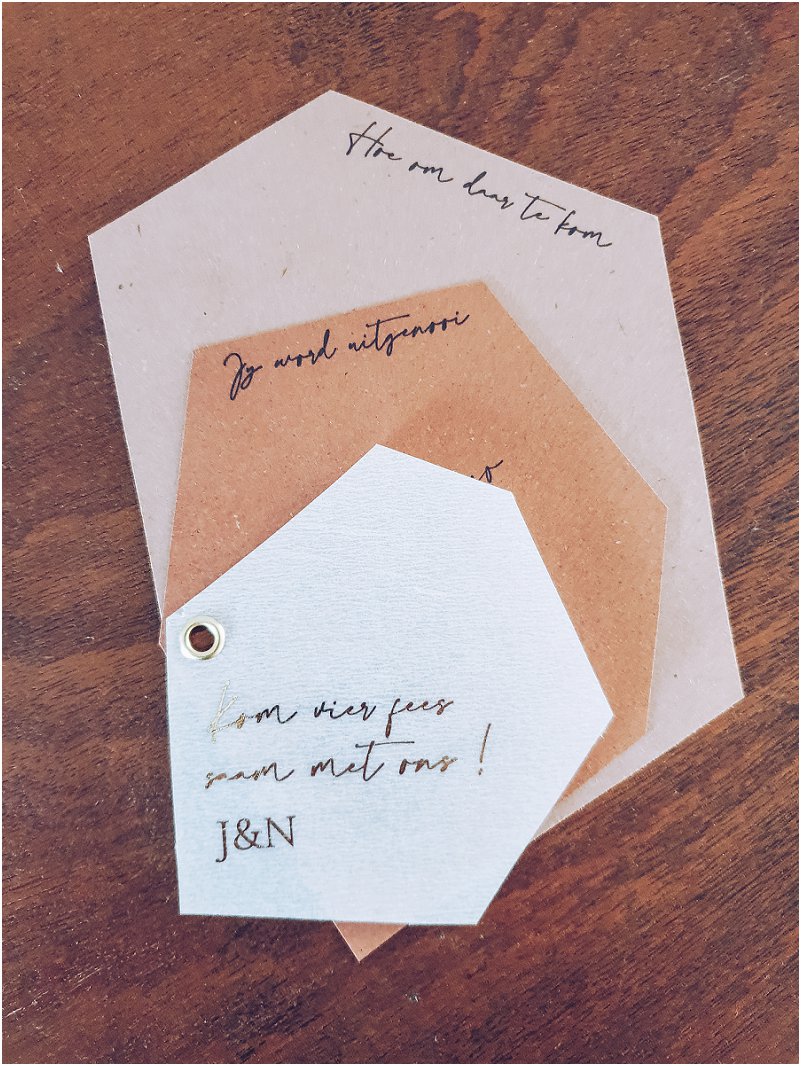 Hoe om daar te kom
Jy word uitgenooi
Kom vier fees
saam met ons !
J&N